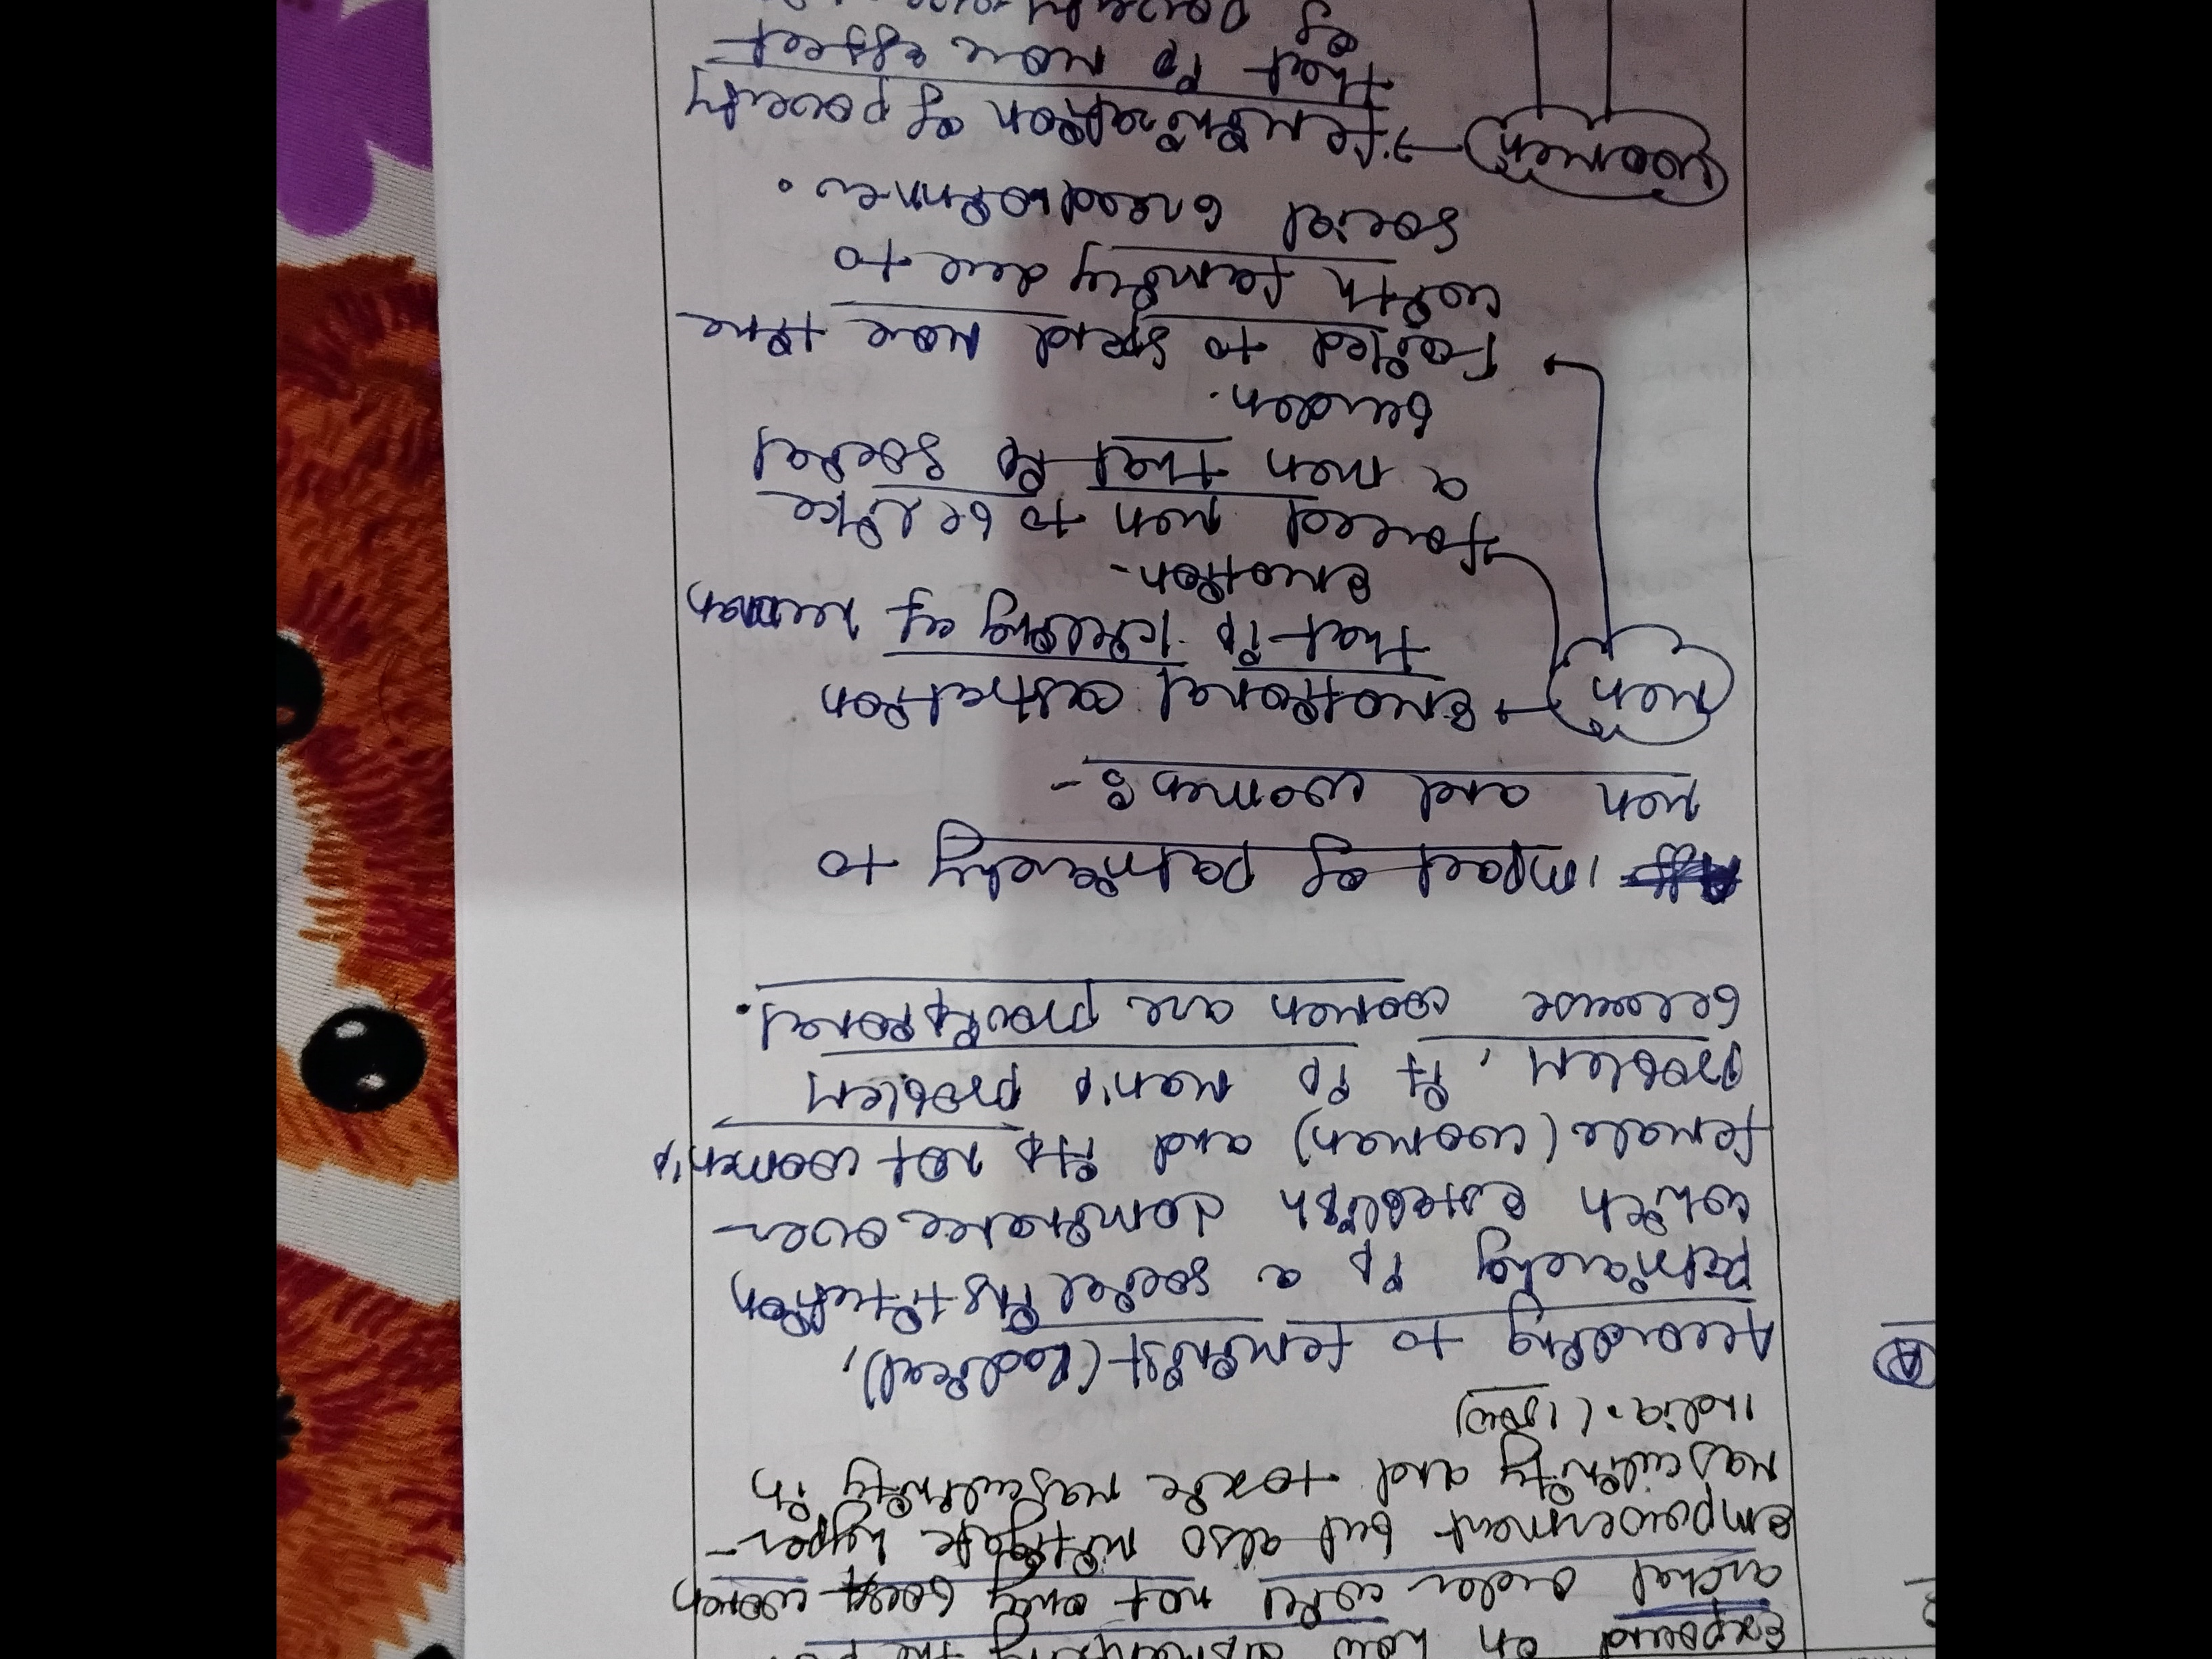 Expound on how dismantling the
archal order will not only boost women
Empowerment but also mitigate hyper-
masculinity and toxic masculinity in
India. (150w)
According to feminist (Radical),
Patriarchy is a social institution
which establish dominance over
female (women) and it's not women's
problem, it is men's problem
because women are prositional.
Impact of patriarchy to
men and women :-
Men
Emotional castration
that is killing of human
Emotion-
forced men to be like
a men that is social
burden.
Failed to spend more time
with family due to
social breadwinner.
Women
Feminization of poverty
that is more effect
of poverty